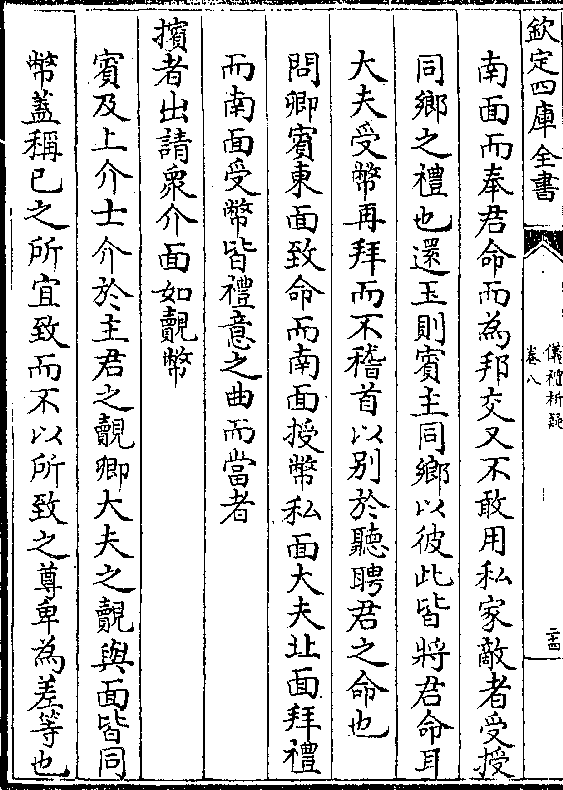 欽定四庫全書
儀禮析疑
卷八
二十四
南面而奉君命而為邦交又不敢用私家敵者受授
同鄉之禮也還玉則賓主同鄉以彼此皆將君命耳
大夫受幣再拜而不稽首以别於聽聘君之命也
問卿賓東面致命而南面授幣私面大夫北面拜禮
而南面受幣皆禮意之曲而當者
擯者出請衆介面如覿幣
賓及上介士介於主君之覿卿大夫之覿與面皆同
幣蓋稱已之所宜致而不以所致之尊卑為差等也